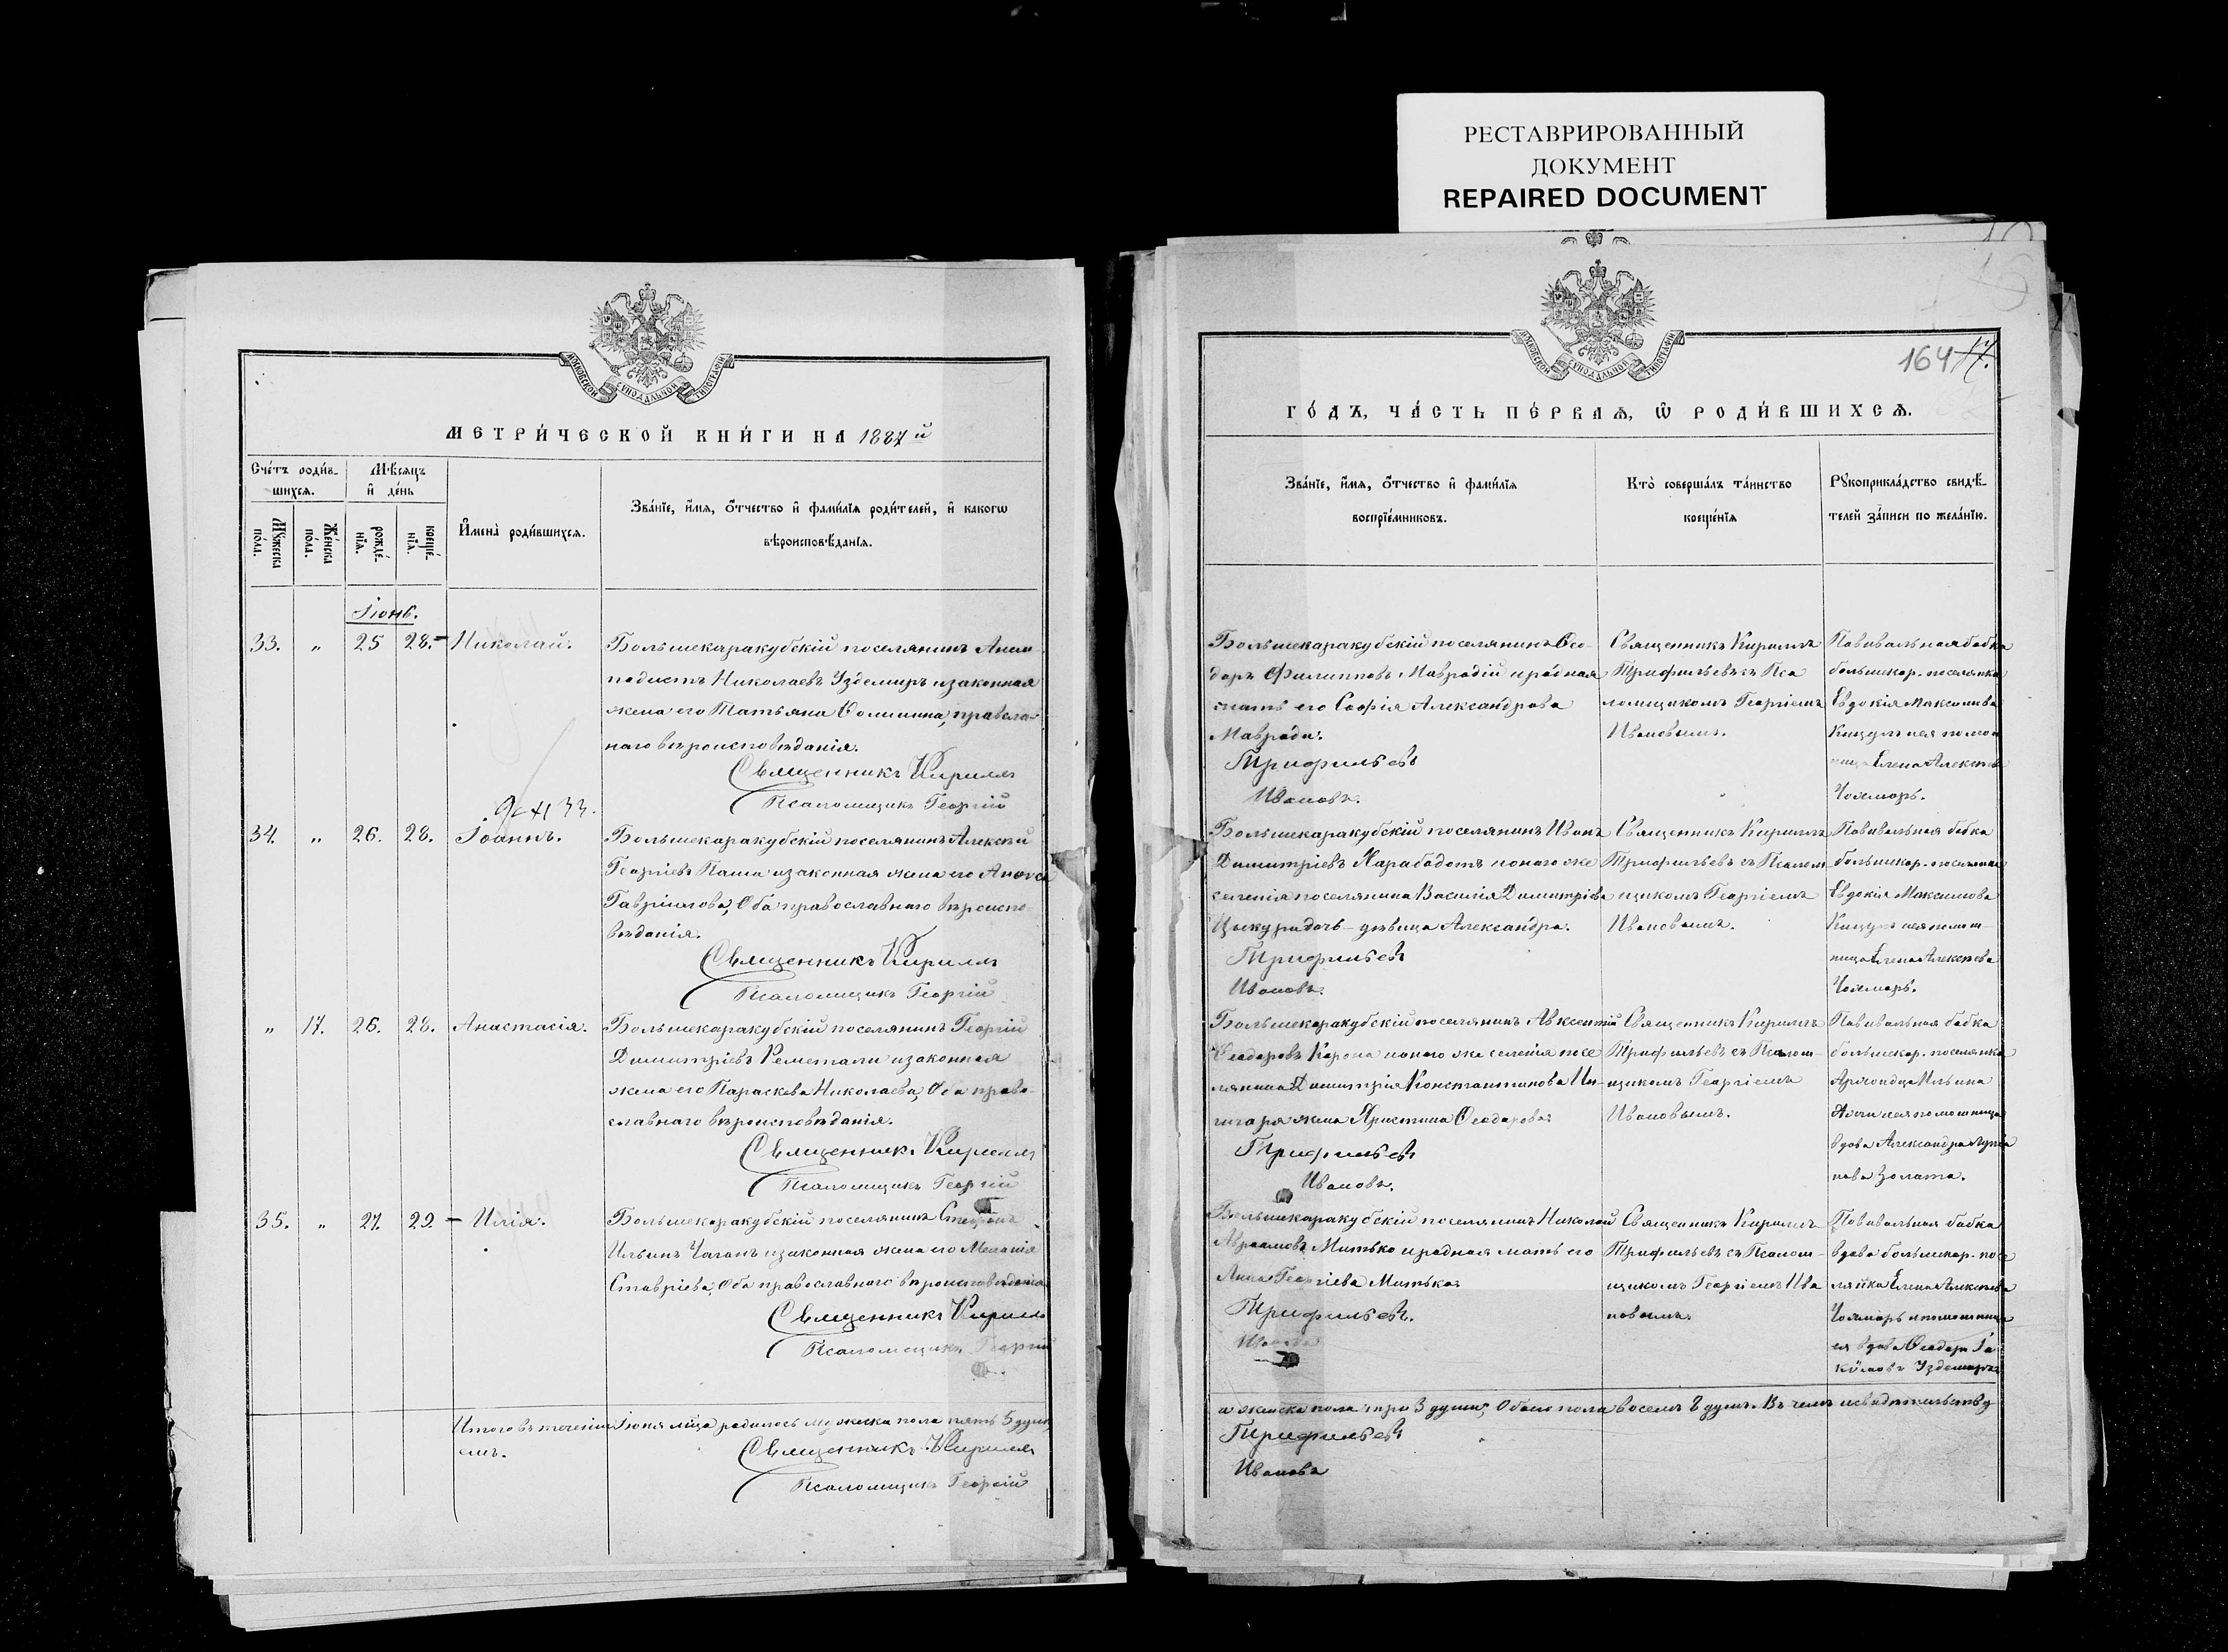 РЕСТАВРИРОВАННЫЙ
ДОКУМЕНТ
REPAIRED DOCUMENT
МОСКОВСКОЙ СѴНОДАЛЬНОЙ ТИПОГРАФІИ
МЕТРИ́ЧЕСКОЙ КНИ́ГИ НА 1887 й
Сче́тъ роди́в-
шихсѧ.
Мѣ́сѧцъ
и҆ де́нь
Мꙋ́жеска по́ла.
Же́нска по́ла.
рожде́-нїѧ.
креще́-нїѧ.
И҆мена̀ роди́вшихсѧ.
Зва́нїе, и҆́мѧ, ѻ҆́тчество и҆ фами́лїѧ роди́телей, и҆ како́гѡ
вѣроисповѣ́данїѧ.
Іюнь.
33. „ 25 28. Николай. Большекаракубскій поселянинъ
Николаевъ Уздемиръ и законная
жена его Татьяна Фомина, православ-
наго вѣроисповѣданія.
Священникъ Кириллъ
Псаломщикъ Георгій
34. „ 26. 28. Іоаннъ. Большекаракубскій поселянинъ Алексѣй
Георгіевъ Паша и законная жена его
Гавріилова, Оба православнаго вѣроиспо-
вѣданія.
Священникъ Кириллъ
Псаломщикъ Георгій
„ 17. 26. 28. Анастасія. Большекаракубскій поселянинъ Георгій
Димитріевъ и законная
жена его Параскева Николаева, Оба право-
славнаго вѣроисповѣданія.
Священникъ Кириллъ
Псаломщикъ Георгій
35. „ 27. 29. Илія. Большекаракубскій поселянинъ
Ильинъ Чаганъ и законная жена его Меланія
Ставріева, Оба православнаго вѣроисповѣданія
Священникъ Кириллъ
Псаломщикъ Георгій
Итого въ теченіи Іюня мѣсца родилось мужеска пола пять 5 душъ,
емъ.
Священникъ Кириллъ
Псаломщикъ Георгій
МОСКОВСКОЙ СѴНОДАЛЬНОЙ ТИПОГРАФІИ
164
ГО́ДЪ, ЧА́СТЬ ПЕ́РВАѦ, Ѡ҆ РОДИ́ВШИХСѦ.
Зва́нїе, и҆́мѧ, ѻ҆́тчество и҆ фами́лїѧ
воспрїе́мниковъ.
Кто̀ соверша́лъ та́инство
креще́нїѧ
Рꙋкоприкла́дство свидѣ́-
телей за́писи по жела́нїю.
Большекаракубскій поселянинъ Ѳео-
доръ Филипповъ Мавродій и родная
мать его Софія Александрова
Мавроди.
Трифильевъ
Ивановъ.
Священникъ Кириллъ
Трифильевъ съ Пса
ломщикомъ Георгіемъ
Ивановымъ.
Повивальная бабка
большекар. поселянка
Евдокія Максимова
Кицулъ и ея помощ
ница Елена Алексѣева
Большекаракубскій поселянинъ Иванъ
Димитріевъ Харабадотъ и онаго же
селенія поселянина Василія Димитріева
дочь - дѣвица Александра.
Трифильевъ
Ивановъ.
Священникъ Кириллъ
Трифильевъ съ Псалом-
щикомъ Георгіемъ
Ивановымъ.
Повивальная бабка
большекар. поселянка
Евдокія Максимова
Кицулъ и ея помощ-
ница Елена Алексѣева
Большекаракубскій поселянинъ Авксентій
Ѳеодоровъ Корона и онаго же селенія посе
лянина Димитрія Константинова
жена Христина Ѳеодорова.
Трифильевъ
Ивановъ.
Священникъ Кириллъ
Трифильевъ съ Псалом-
щикомъ Георгіемъ
Ивановымъ.
Повивальная бабка
большекар. поселянка
Ильина
и ея помощница
вдова Александра
Золата.
Большекаракубскій поселянинъ Николай
Авраамовъ Митько и родная мать его
Анна Георгіева Митько.
Трифильевъ.
Ивановъ
Священникъ Кириллъ
Трифильевъ съ Псалом-
щикомъ Георгіемъ Ива
новымъ.
Повивальная бабка
вдова большекар. посе
лянка Елена Алексѣева
и помощница
ея вдова Ѳеодора
Уздемиръ
и женска пола три 3 души, Обоего пола восемь 8 душъ. Въ чемъ и свидѣтельству
Трифильевъ
Ивановъ